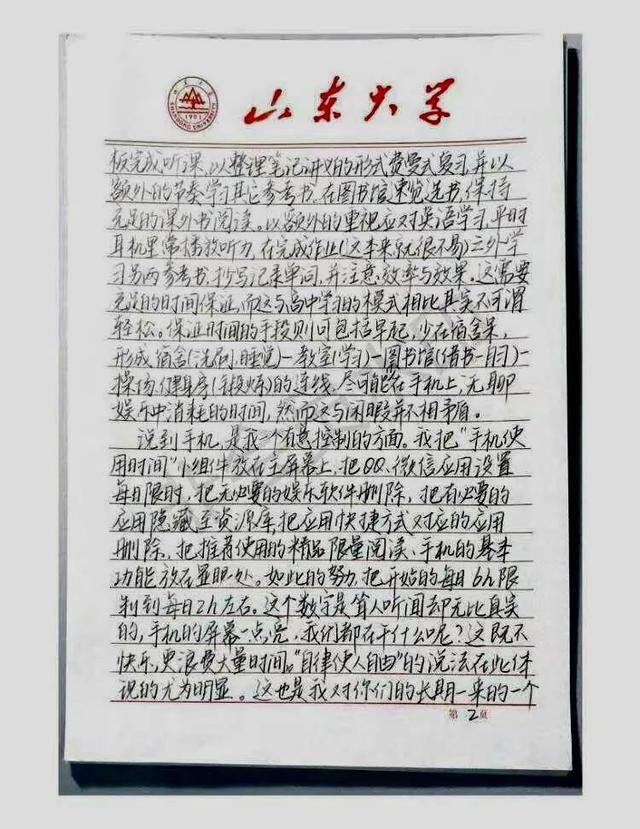 山东大学
SHANDONG UNIVERSITY
1901
板完成听课,以整理笔记讲义的形式费曼式复习,并以
额外的节奏学习其它参考书。在图书馆速览选书,保持
充足的课外书阅读。以额外的重视应对英语学习,平时
耳机里常播放听力,在完成作业(这本来就很不易)之外学
习另两参考书,抄写记录单词,并注意效率与效果。这需要
充足的时间保证,而这与高中学习的模式相比其实不可谓
轻松。保证时间的手段则可包括早起,少在宿舍呆,
形成宿舍(洗刷、睡觉)—教室(学习)—图书馆(借书—自习)—
操场、健身房(锻炼)的连线,尽可能在手机上,无聊
娱乐中消耗的时间,然而这与闲暇并不相矛盾。
说到手机,是我一个有意控制的方面。我把“手机使
用时间”小组件放在主屏幕上,把QQ、微信应用设置
每日限时,把无必要的娱乐软件删除,把有必要的
应用隐藏至资源库,把应用快捷方式对应的应用
删除,把推荐使用的精品限量阅读、手机的基本
功能放在显眼处。如此的努力,把开始的每日6h限
制到每日2h左右。这个数字是耸人听闻却无比真实
的,手机的屏幕一点亮,我们都在干什么呢?这既不
快乐,更浪费大量时间。“自律使人自由”的说法在此体
现的尤为明显。这也是我对你们的长期一来的一个
第2页